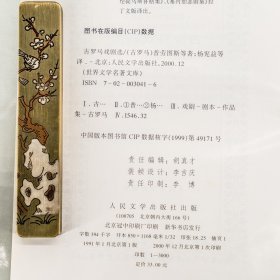 丁文版译出。
图书在版编目(CIP)数据
古罗马戏剧选/(古罗马)普劳图斯等著;杨宪益等
译.-北京:人民文学出版社,2000.12
(世界文学名著文库)
ISBN 7-02-003041-6
Ⅰ.古… Ⅱ.①普…②杨… Ⅲ.戏剧-剧本-作品
集-古罗马 Ⅳ.I546.32
中国版本图书馆CIP数据核字(1999)第49171号
责任编辑:胡真才
装帧设计:李吉庆
责任印制:李博
人民文学出版社出版
(100705 北京朝内大街166号)
北京冠中印刷厂印刷 新华书店发行
字数394千字 开本850×1168毫米1/32 印张18.25 插页1
1991年2月北京第1版 2000年12月北京第1次印刷
印数1-3000
定价33.00元